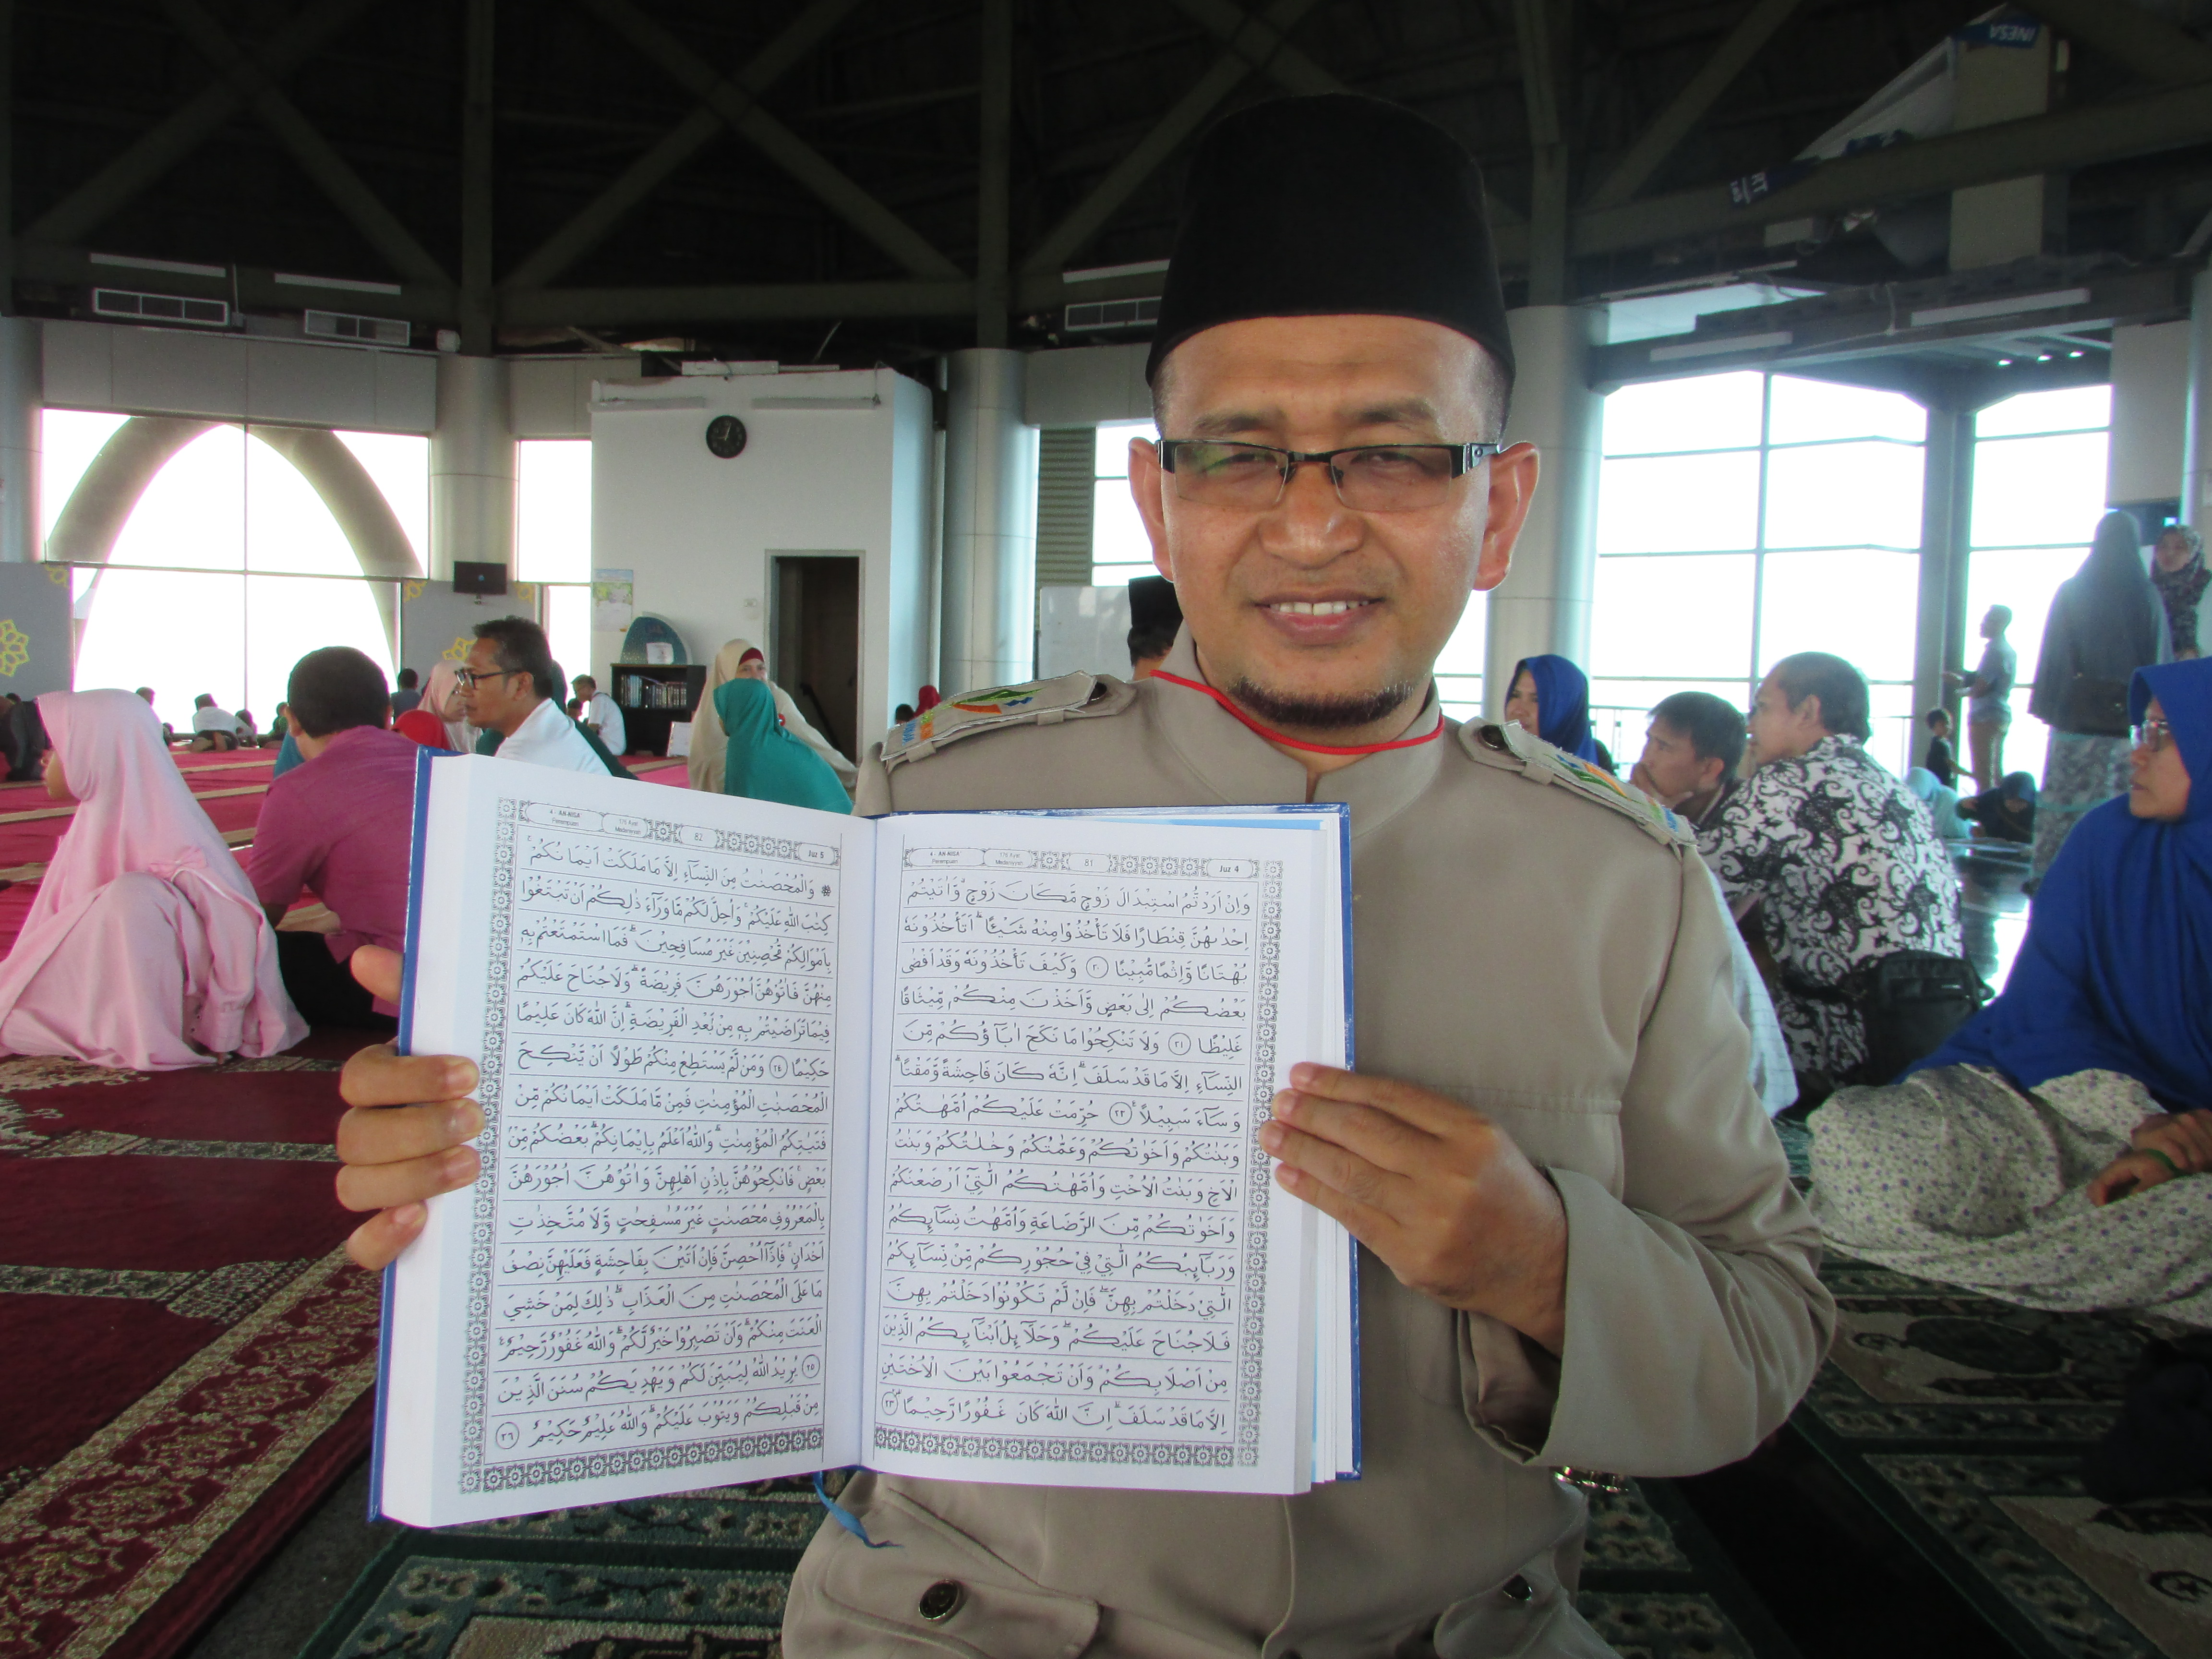 Juz 4
81
176 Ayat
Madaniyyah
4 - AN-NISA'
Perempuan
وَاِنْ اَرَدْتُّمُ اسْتِبْدَالَ زَوْجٍ مَّكَانَ زَوْجٍۙ وَّاٰتَيْتُمْ
اِحْدٰىهُنَّ قِنْطَارًا فَلَا تَأْخُذُوْا مِنْهُ شَيْـًٔاۗ اَتَأْخُذُوْنَهٗ
بُهْتَانًا وَّاِثْمًا مُّبِيْنًا ٢٠ وَكَيْفَ تَأْخُذُوْنَهٗ وَقَدْ اَفْضٰى
بَعْضُكُمْ اِلٰى بَعْضٍ وَّاَخَذْنَ مِنْكُمْ مِّيْثَاقًا
غَلِيْظًا ٢١ وَلَا تَنْكِحُوْا مَا نَكَحَ اٰبَاۤؤُكُمْ مِّنَ
النِّسَاۤءِ اِلَّا مَا قَدْ سَلَفَۗ اِنَّهٗ كَانَ فَاحِشَةً وَّمَقْتًاۗ
وَسَاۤءَ سَبِيْلًا ٢٢ حُرِّمَتْ عَلَيْكُمْ اُمَّهٰتُكُمْ
وَبَنٰتُكُمْ وَاَخَوٰتُكُمْ وَعَمّٰتُكُمْ وَخٰلٰتُكُمْ وَبَنٰتُ
الْاَخِ وَبَنٰتُ الْاُخْتِ وَاُمَّهٰتُكُمُ الّٰتِيْٓ اَرْضَعْنَكُمْ
وَاَخَوٰتُكُمْ مِّنَ الرَّضَاعَةِ وَاُمَّهٰتُ نِسَاۤىِٕكُمْ
وَرَبَاۤىِٕبُكُمُ الّٰتِيْ فِيْ حُجُوْرِكُمْ مِّنْ نِّسَاۤىِٕكُمُ
الّٰتِيْ دَخَلْتُمْ بِهِنَّۖ فَاِنْ لَّمْ تَكُوْنُوْا دَخَلْتُمْ بِهِنَّ
فَلَا جُنَاحَ عَلَيْكُمْۖ وَحَلَاۤىِٕلُ اَبْنَاۤىِٕكُمُ الَّذِيْنَ
مِنْ اَصْلَابِكُمْۙ وَاَنْ تَجْمَعُوْا بَيْنَ الْاُخْتَيْنِ
اِلَّا مَا قَدْ سَلَفَۗ اِنَّ اللّٰهَ كَانَ غَفُوْرًا رَّحِيْمًا ٢٣
Juz 5
82
176 Ayat
Madaniyyah
4 - AN-NISA'
Perempuan
۞ وَالْمُحْصَنٰتُ مِنَ النِّسَاۤءِ اِلَّا مَا مَلَكَتْ اَيْمَانُكُمْۚ
كِتٰبَ اللّٰهِ عَلَيْكُمْۚ وَاُحِلَّ لَكُمْ مَّا وَرَاۤءَ ذٰلِكُمْ اَنْ تَبْتَغُوْا
بِاَمْوَالِكُمْ مُّحْصِنِيْنَ غَيْرَ مُسَافِحِيْنَۗ فَمَا اسْتَمْتَعْتُمْ بِهٖ
مِنْهُنَّ فَاٰتُوْهُنَّ اُجُوْرَهُنَّ فَرِيْضَةًۗ وَلَا جُنَاحَ عَلَيْكُمْ
فِيْمَا تَرَاضَيْتُمْ بِهٖ مِنْۢ بَعْدِ الْفَرِيْضَةِۗ اِنَّ اللّٰهَ كَانَ عَلِيْمًا
حَكِيْمًا ٢٤ وَمَنْ لَّمْ يَسْتَطِعْ مِنْكُمْ طَوْلًا اَنْ يَّنْكِحَ
الْمُحْصَنٰتِ الْمُؤْمِنٰتِ فَمِنْ مَّا مَلَكَتْ اَيْمَانُكُمْ مِّنْ
فَتَيٰتِكُمُ الْمُؤْمِنٰتِۗ وَاللّٰهُ اَعْلَمُ بِاِيْمَانِكُمْۗ بَعْضُكُمْ مِّنْۢ
بَعْضٍۚ فَانْكِحُوْهُنَّ بِاِذْنِ اَهْلِهِنَّ وَاٰتُوْهُنَّ اُجُوْرَهُنَّ
بِالْمَعْرُوْفِ مُحْصَنٰتٍ غَيْرَ مُسٰفِحٰتٍ وَّلَا مُتَّخِذٰتِ
اَخْدَانٍۚ فَاِذَآ اُحْصِنَّ فَاِنْ اَتَيْنَ بِفَاحِشَةٍ فَعَلَيْهِنَّ نِصْفُ
مَا عَلَى الْمُحْصَنٰتِ مِنَ الْعَذَابِۗ ذٰلِكَ لِمَنْ خَشِيَ
الْعَنَتَ مِنْكُمْۗ وَاَنْ تَصْبِرُوْا خَيْرٌ لَّكُمْۗ وَاللّٰهُ غَفُوْرٌ رَّحِيْمٌ
٢٥ يُرِيْدُ اللّٰهُ لِيُبَيِّنَ لَكُمْ وَيَهْدِيَكُمْ سُنَنَ الَّذِيْنَ
مِنْ قَبْلِكُمْ وَيَتُوْبَ عَلَيْكُمْۗ وَاللّٰهُ عَلِيْمٌ حَكِيْمٌ ٢٦